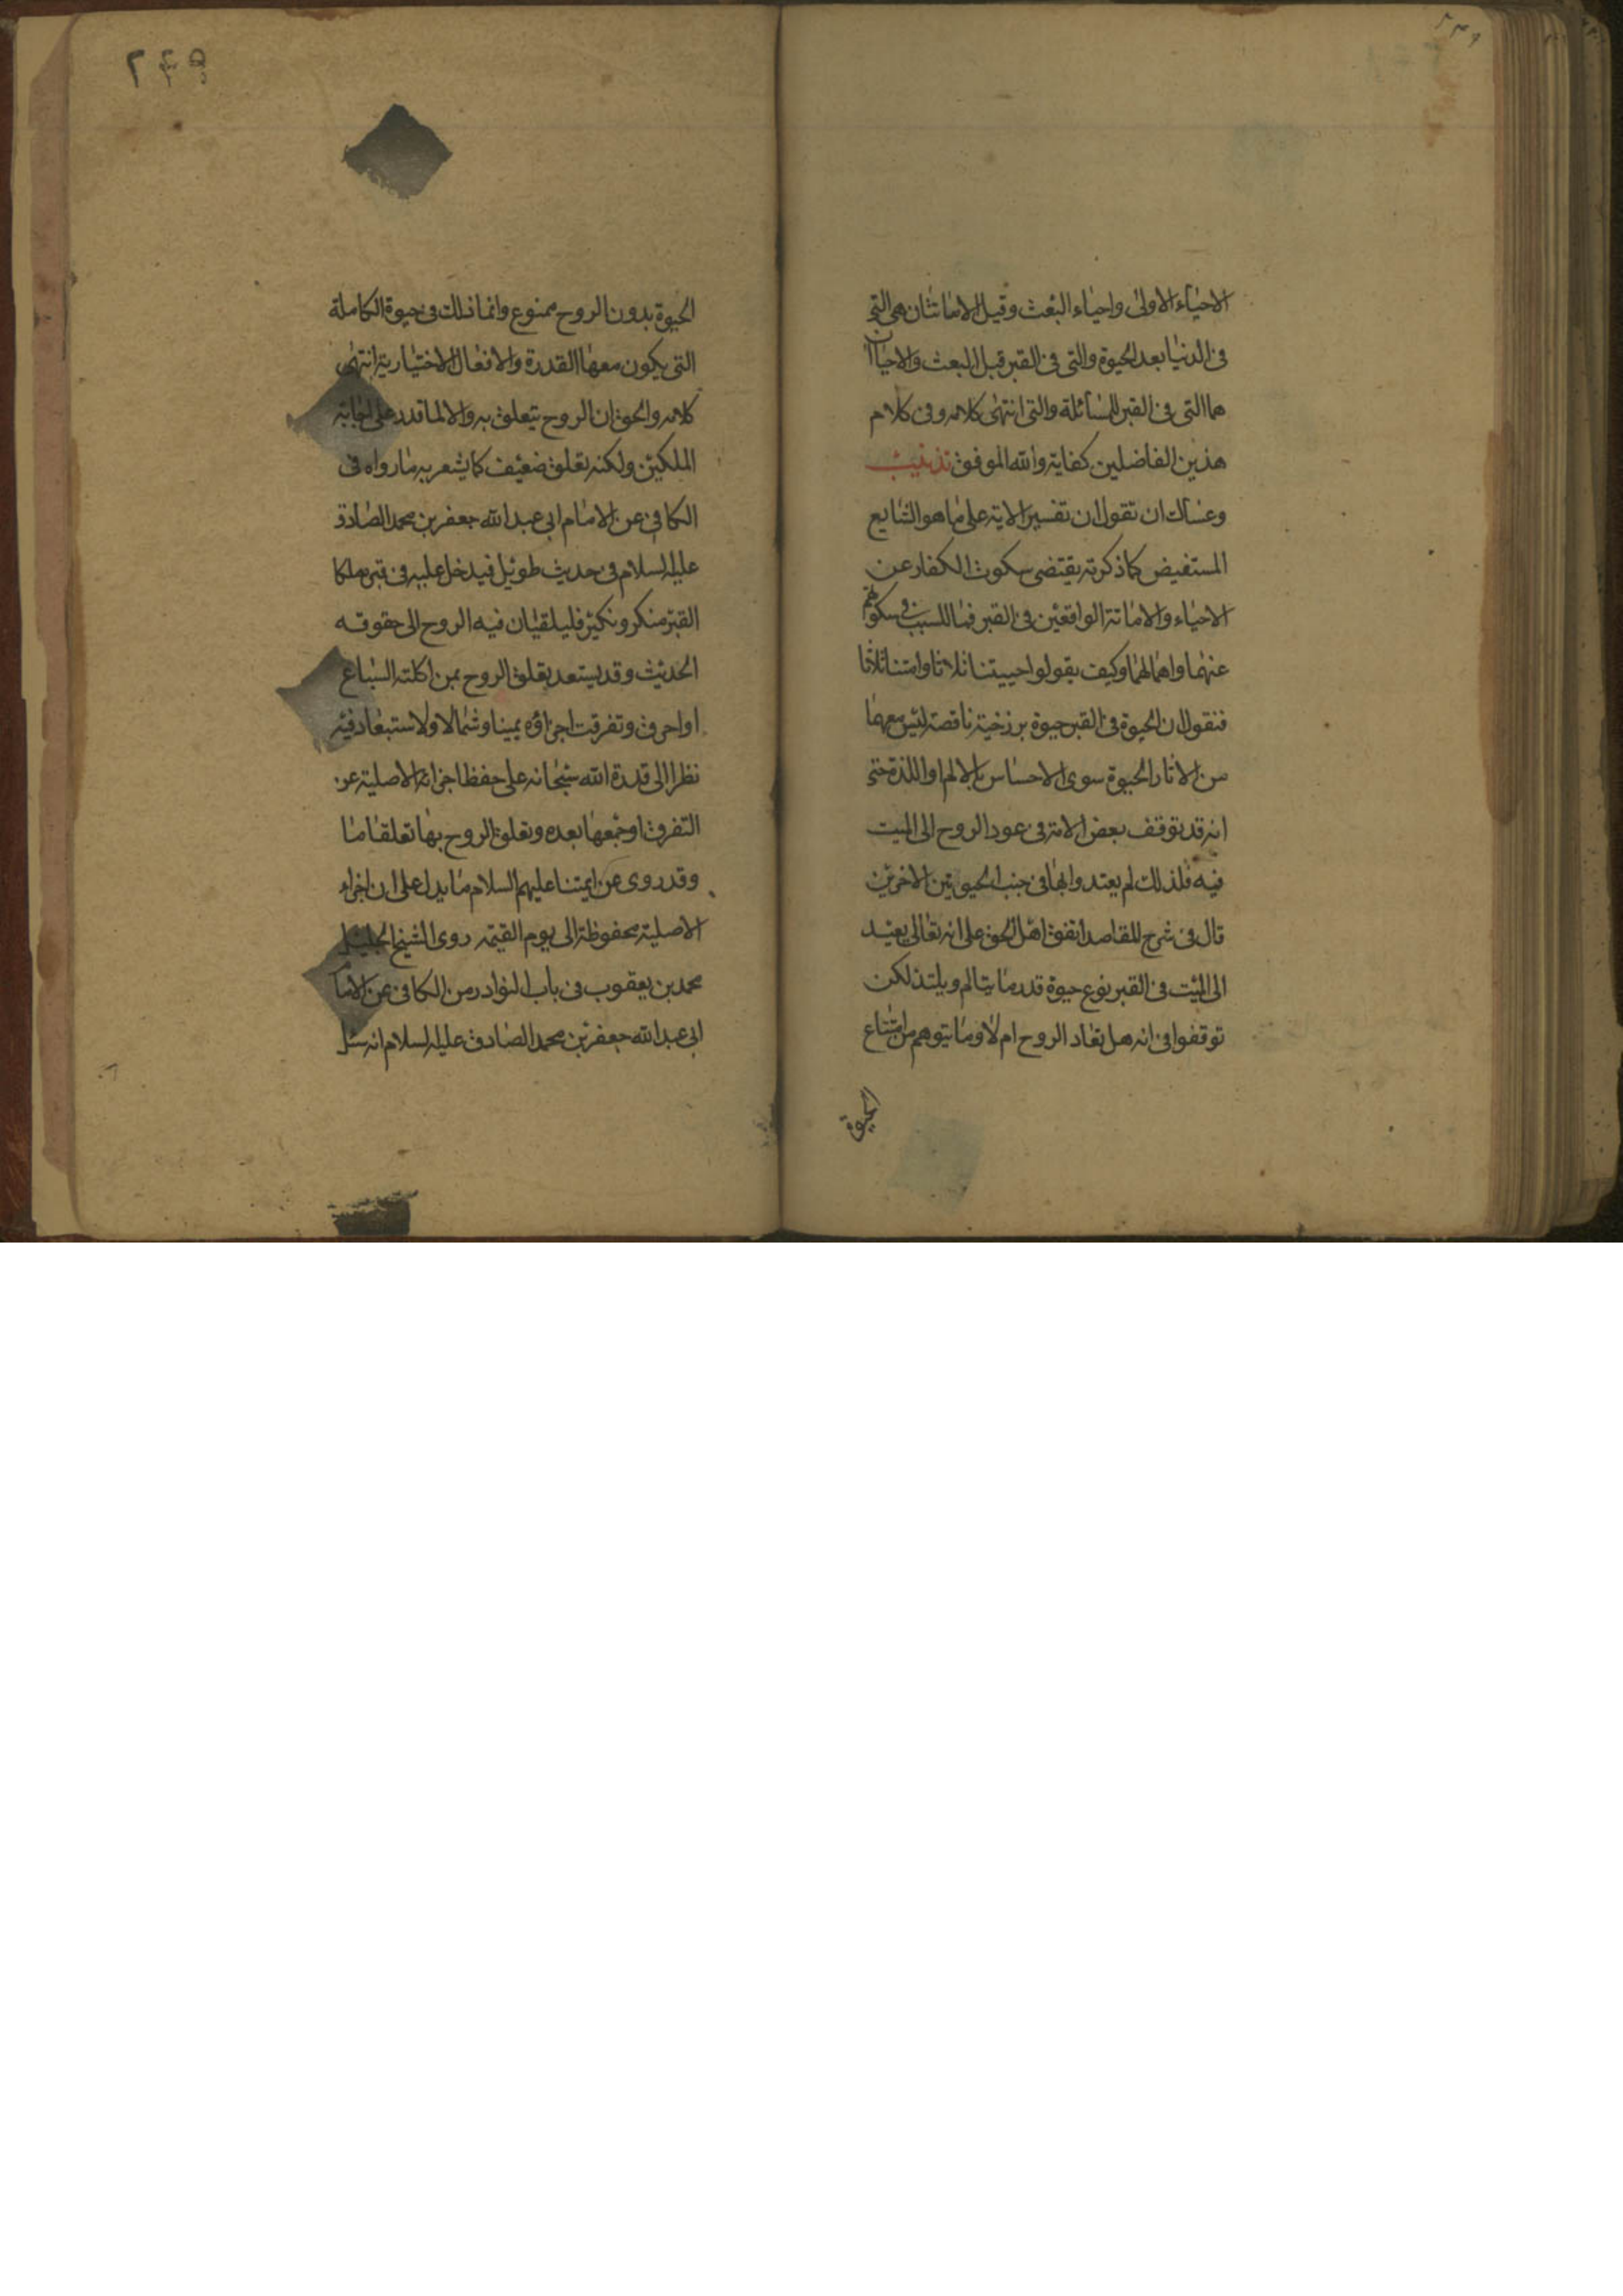 الاحياء الاولى واحياء البعث وقيل الاماتتان هى التى
فى الدنيا بعد الحيوة والتى فى القبر قبل البعث والاحياان
هما التى فى القبر للمسائلة والتى انتهى كلامه وفى كلام
هذين الفاضلين كفاية والله الموفق تذنيب
وعساك ان تقول ان تفسير الاية على ما هو الشايع
المستفيض كما ذكرته يقتضى سكوت الكفار عن
الاحياء والاماتة الواقعين فى القبر فما السبب فى سكوتهم
عنهما واهمالهما وكيف يقولوا احييتنا ثلاثا وامتنا ثلاثا
فنقول ان الحيوة فى القبر حيوة برزخية ناقصة ليس معها
من الاثار الحيوة سوى الاحساس بالالم او اللذة حتى
انه قد توقف بعض الامة فى عود الروح الى الميت
فيه فلذلك لم يعتدوا بها فى جنب الحيوتين الاخريين
قال فى شرح المقاصد اتفق اهل الحق على انه تعالى يعيد
الى الميت فى القبر نوع حيوة قدر ما يتالم ويلتذ لكن
توقفوا فى انه هل تعاد الروح ام لا وما يتوهم من امتناع
الحيوة
٢٤٩
الحيوة بدون الروح ممنوع وانما ذلك فى حيوة الكاملة
التى يكون معها القدرة والافعال الاختيارية انتهى
كلامه والحق ان الروح يتعلق به والا لما قدر على اجابة
الملكين ولكنه تعلق ضعيف كما يشعر به ما رواه فى
الكافى عن الامام ابى عبد الله جعفر بن محمد الصادق
عليه السلام فى حديث طويل فيدخل عليه فى قبره ملكا
القبر منكر ونكير فليلقيان فيه الروح الى حقوقه
الحديث وقد يستعد تعلق الروح بمن اكلته السباع
او احرق وتفرقت اجزاؤه يمينا وشمالا ولا استبعاد فيه
نظرا الى قدرة الله سبحانه على حفظ اجزائه الاصلية عن
التفرق او جمعها بعده وتعلق الروح بها تعلقا ما
وقد روى عن ايمتنا عليهم السلام ما يدل على ان اجزاء
الاصلية محفوظة الى يوم القيمه روى الشيخ الجليل
محمد بن يعقوب فى باب النوادر من الكافى عن الاما
ابى عبد الله جعفر بن محمد الصادق عليه السلام انه سئل